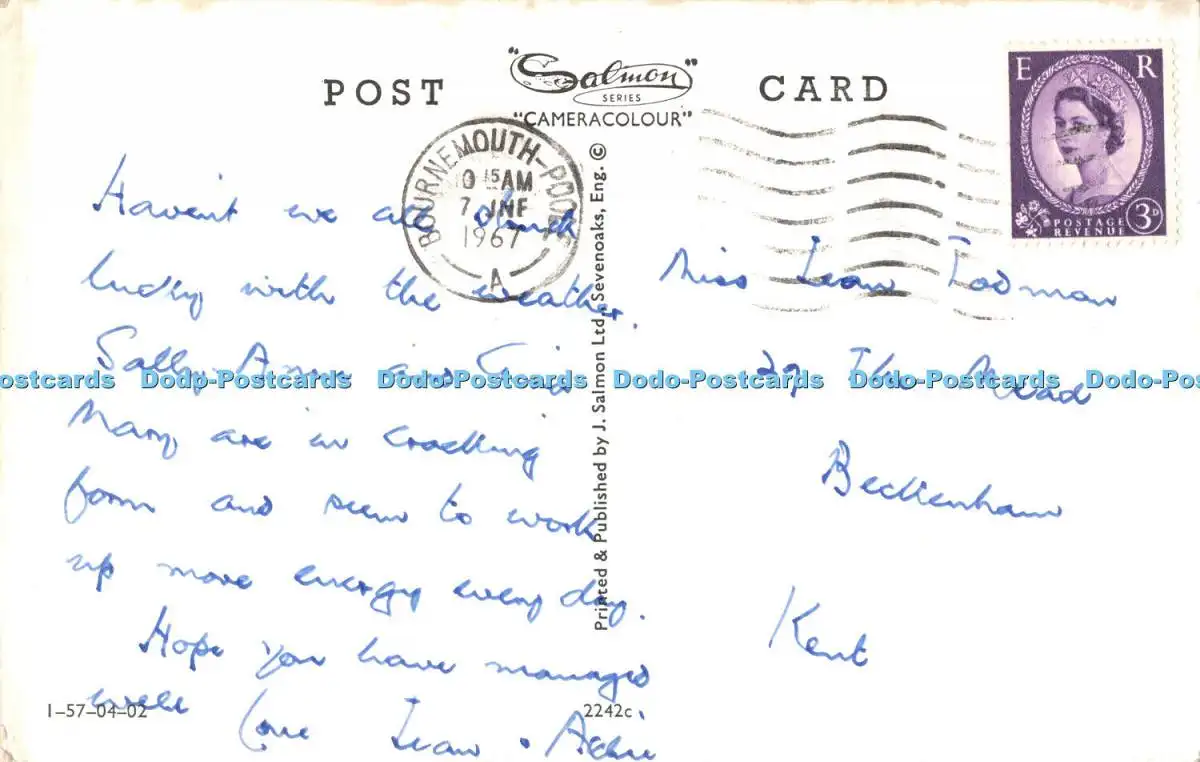 POST "Salmon" CARD
SERIES
"CAMERACOLOUR"
E R
POSTAGE
REVENUE 3D
BOURNEMOUTH-POOLE
15 AM
7 JNE
1967
A
Havent we all struck
lucky with the weather.
Sally, Anne and
Mary are in cracking
form and seem to work
up more energy every day.
Hope you have managed
well
love Jean
Miss Jean Todman
27 The Mead
Beckenham
Kent
Printed & Published by J. Salmon Ltd., Sevenoaks, Eng. ©
1-57-04-02
2242c
Postcards Dodo-Postcards Dodo-Postcards Dodo-Postcards Dodo-Postcards Dodo-Pos